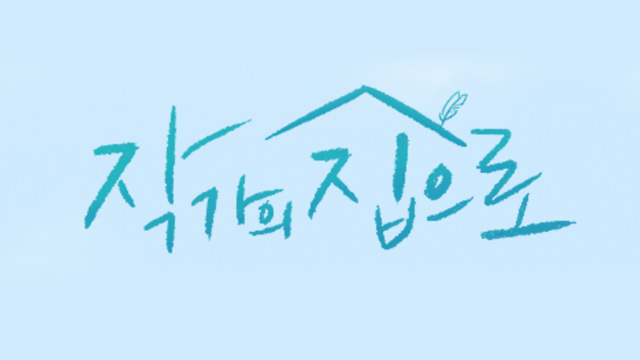 작가의 집으로